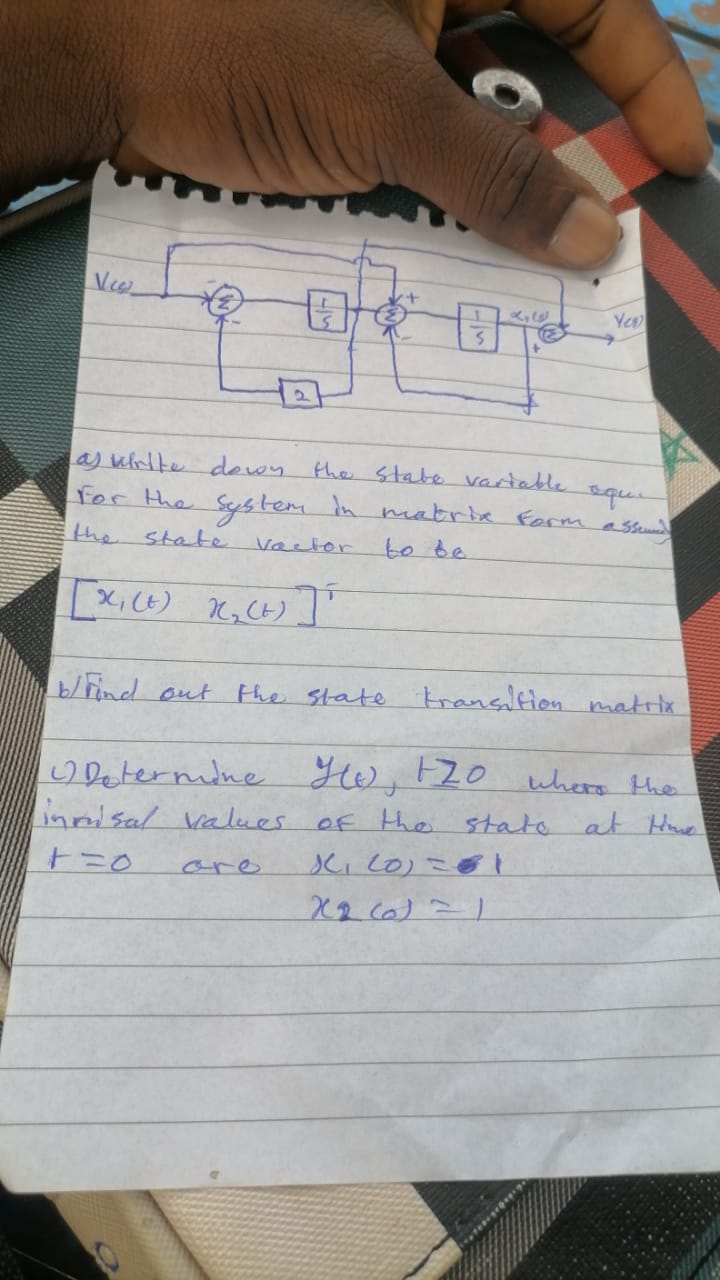 V(s)
-
Σ
1/s
Σ
+
1/s
x₁(s)
Σ
Y(s)
-
-
+
2
a) Write down the state variable equ.
for the system in matrix form
the state vactor to be
[x₁(t) x₂(t)]ᵀ
b/ Find out the state transition matrix
c) Determine y(t), t≥0 where the
values of the state at time
t=0 are x₁(0)=1
x2(0)=1